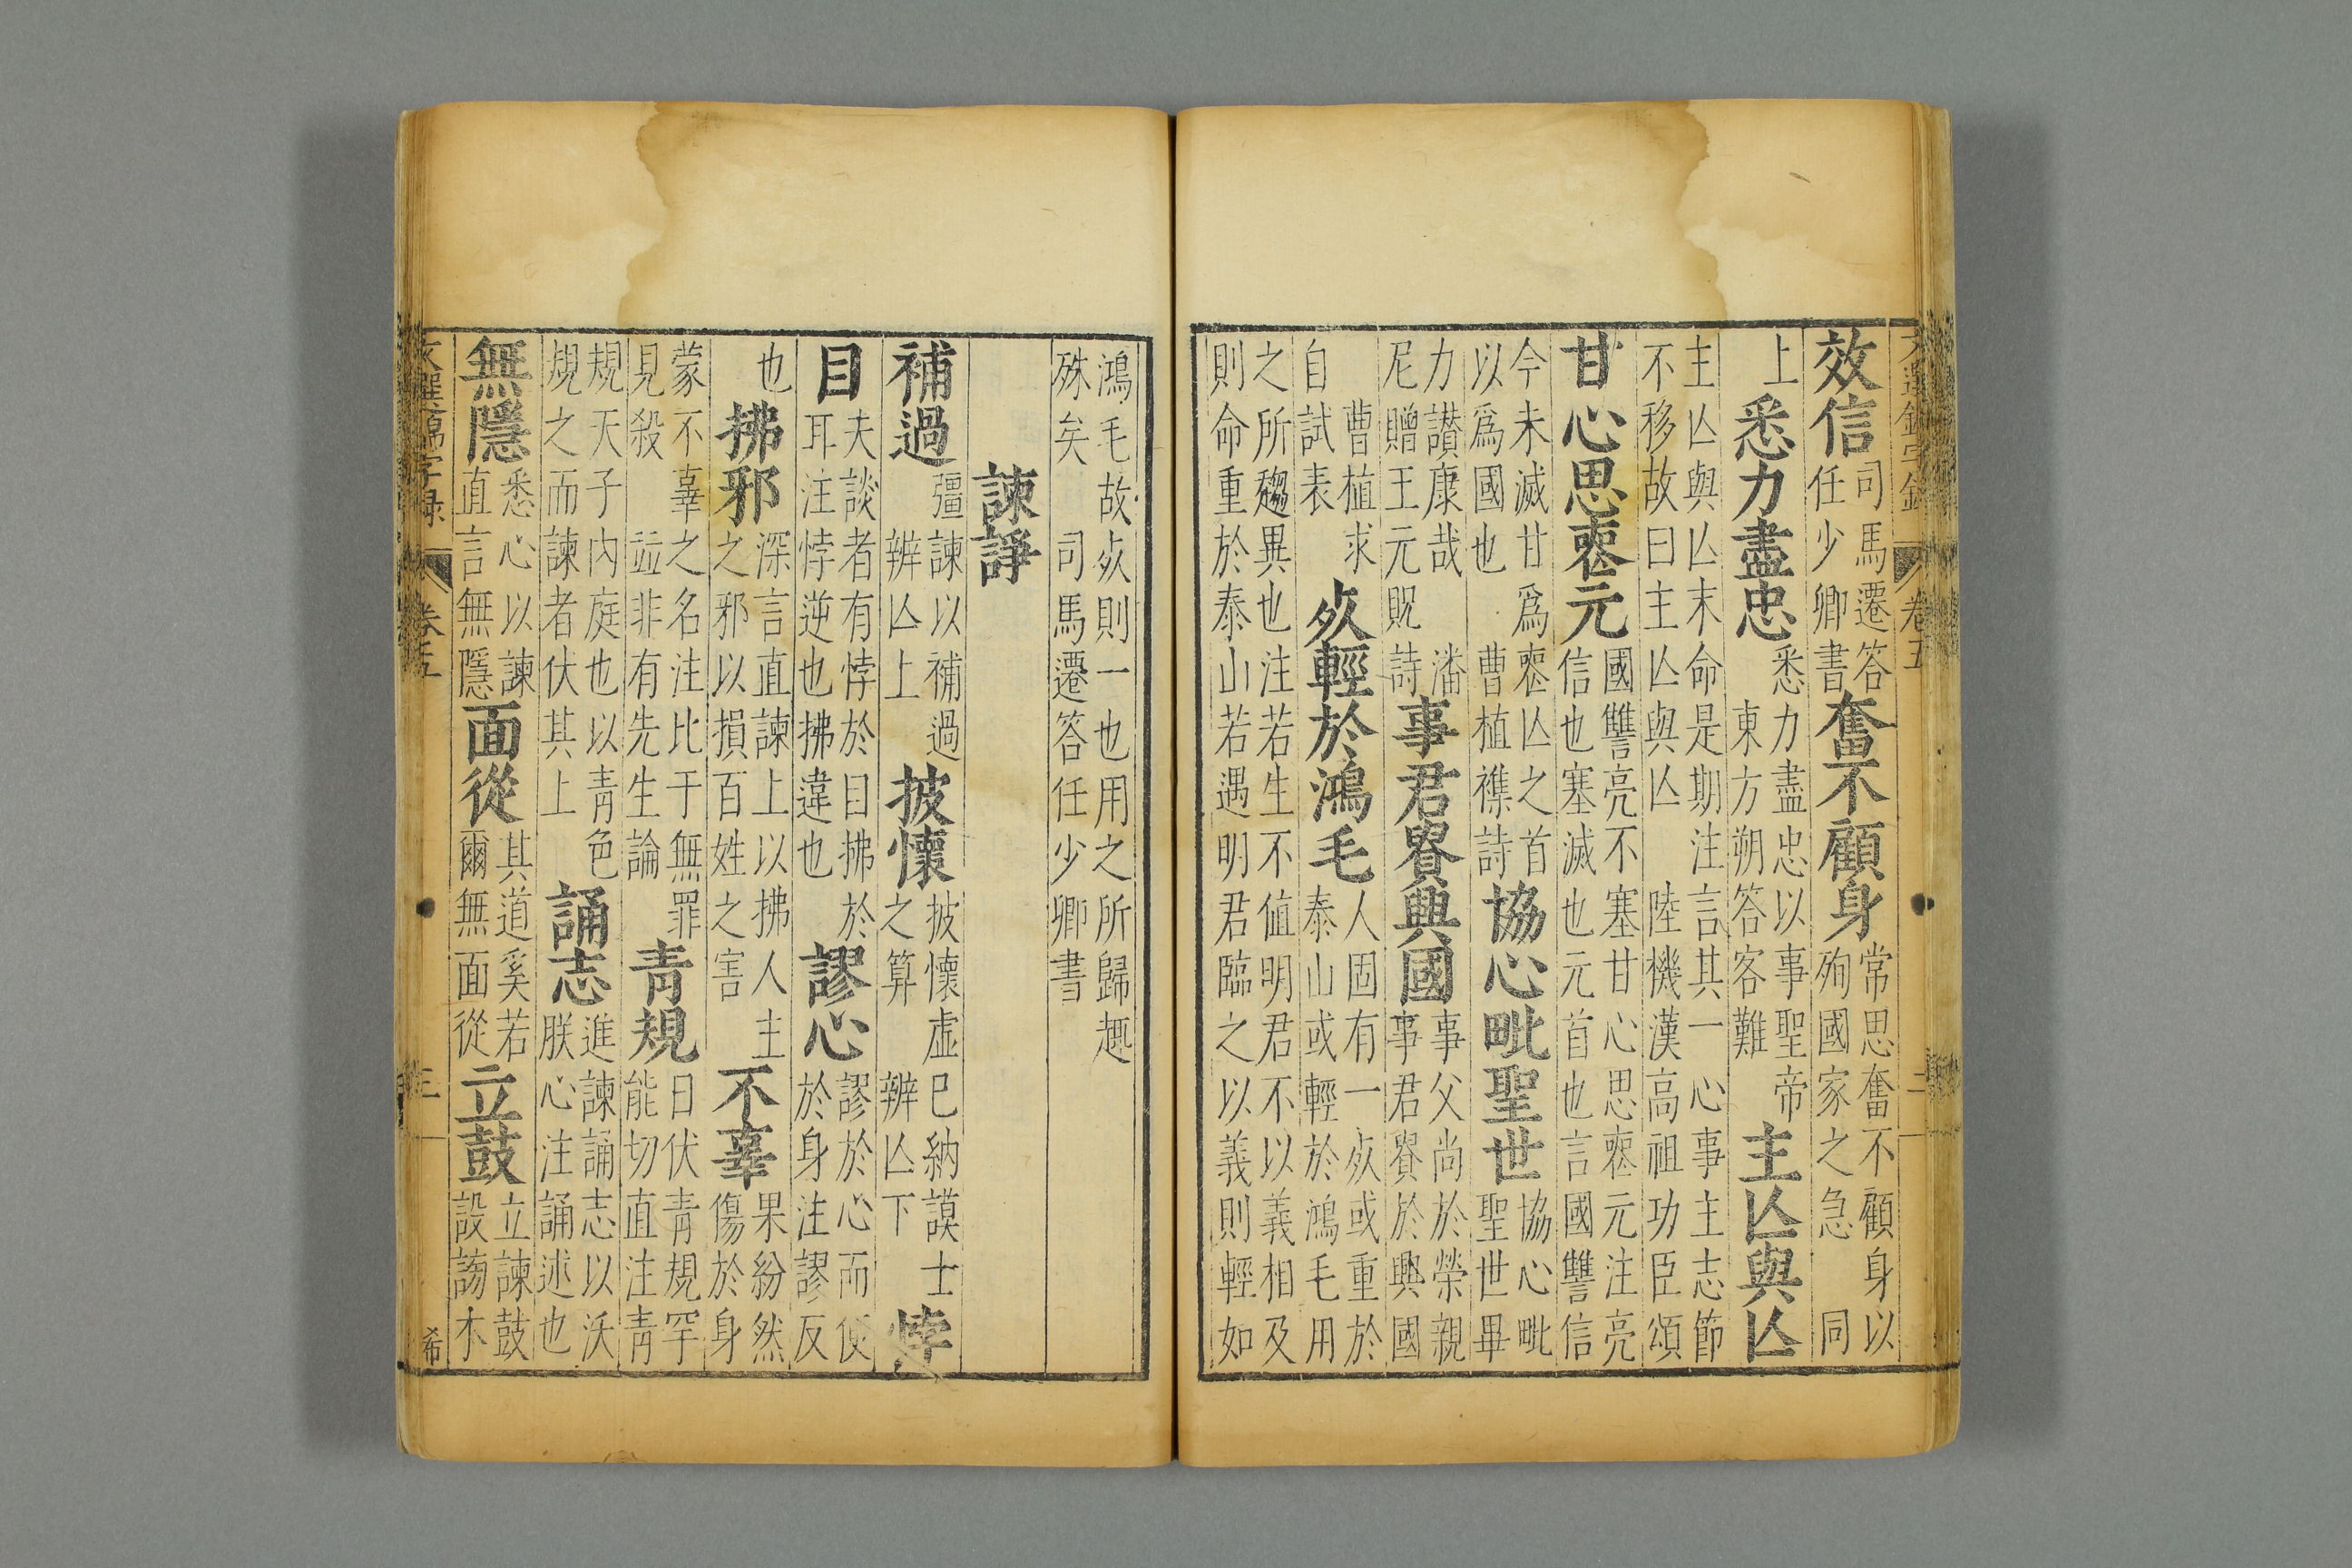 效信司馬遷答任少卿書奮不顧身常思奮不顧身以殉國家之急同
上悉力盡忠悉力盡忠以事聖帝東方朔答客難主亾與亾
主亾與亾末命是期注言其一心事主志節不移故曰主亾與亾陸機漢高祖功臣頌
甘心思喪元國讐亮不塞甘心思喪元注亮信也塞滅也元首也言國讐信
今未滅甘爲喪亾之首以爲國也曹植襍詩協心毗聖世協心毗聖世畢
力讃康哉尼贈王元貺詩潘事君賢興國事父尚於榮親事君賢於興國
曹植求自試表㱙輕於鴻毛人固有一㱙或重於泰山或輕於鴻毛用
之所趨異也注若生不值明君不以義相及則命重於泰山若遇明君臨之以義則輕如
鴻毛故㱙則一也用之所歸趣殊矣司馬遷答任少卿書
諫諍
補過彊諫以補過辨亾上披懷披懷虛已納謨士之算辨亾下悖
目夫談者有悖於目拂於耳注悖逆也拂違也謬心謬於心而便於身注謬反
也拂邪深言直諫上以拂人主之邪以損百姓之害不辜果紛然傷於身
蒙不辜之名注比于無罪見殺竝非有先生論青規日伏青規罕能切直注青
規天子內庭也以青色規之而諫者伏其上誦志進諫誦志以沃朕心注誦述也
無隱悉心以諫直言無隱面從其道奚若爾無面從立鼓立諫鼓設謗木
文選錦字錄
卷五
三
希
卷五
二